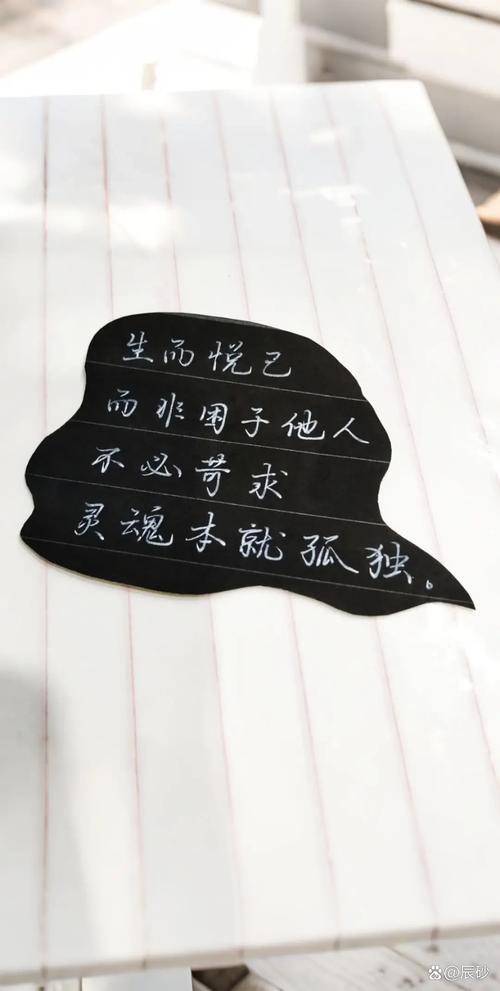 生而悦己
而非困于他人
不必苛求
灵魂本就孤独。
@辰砂